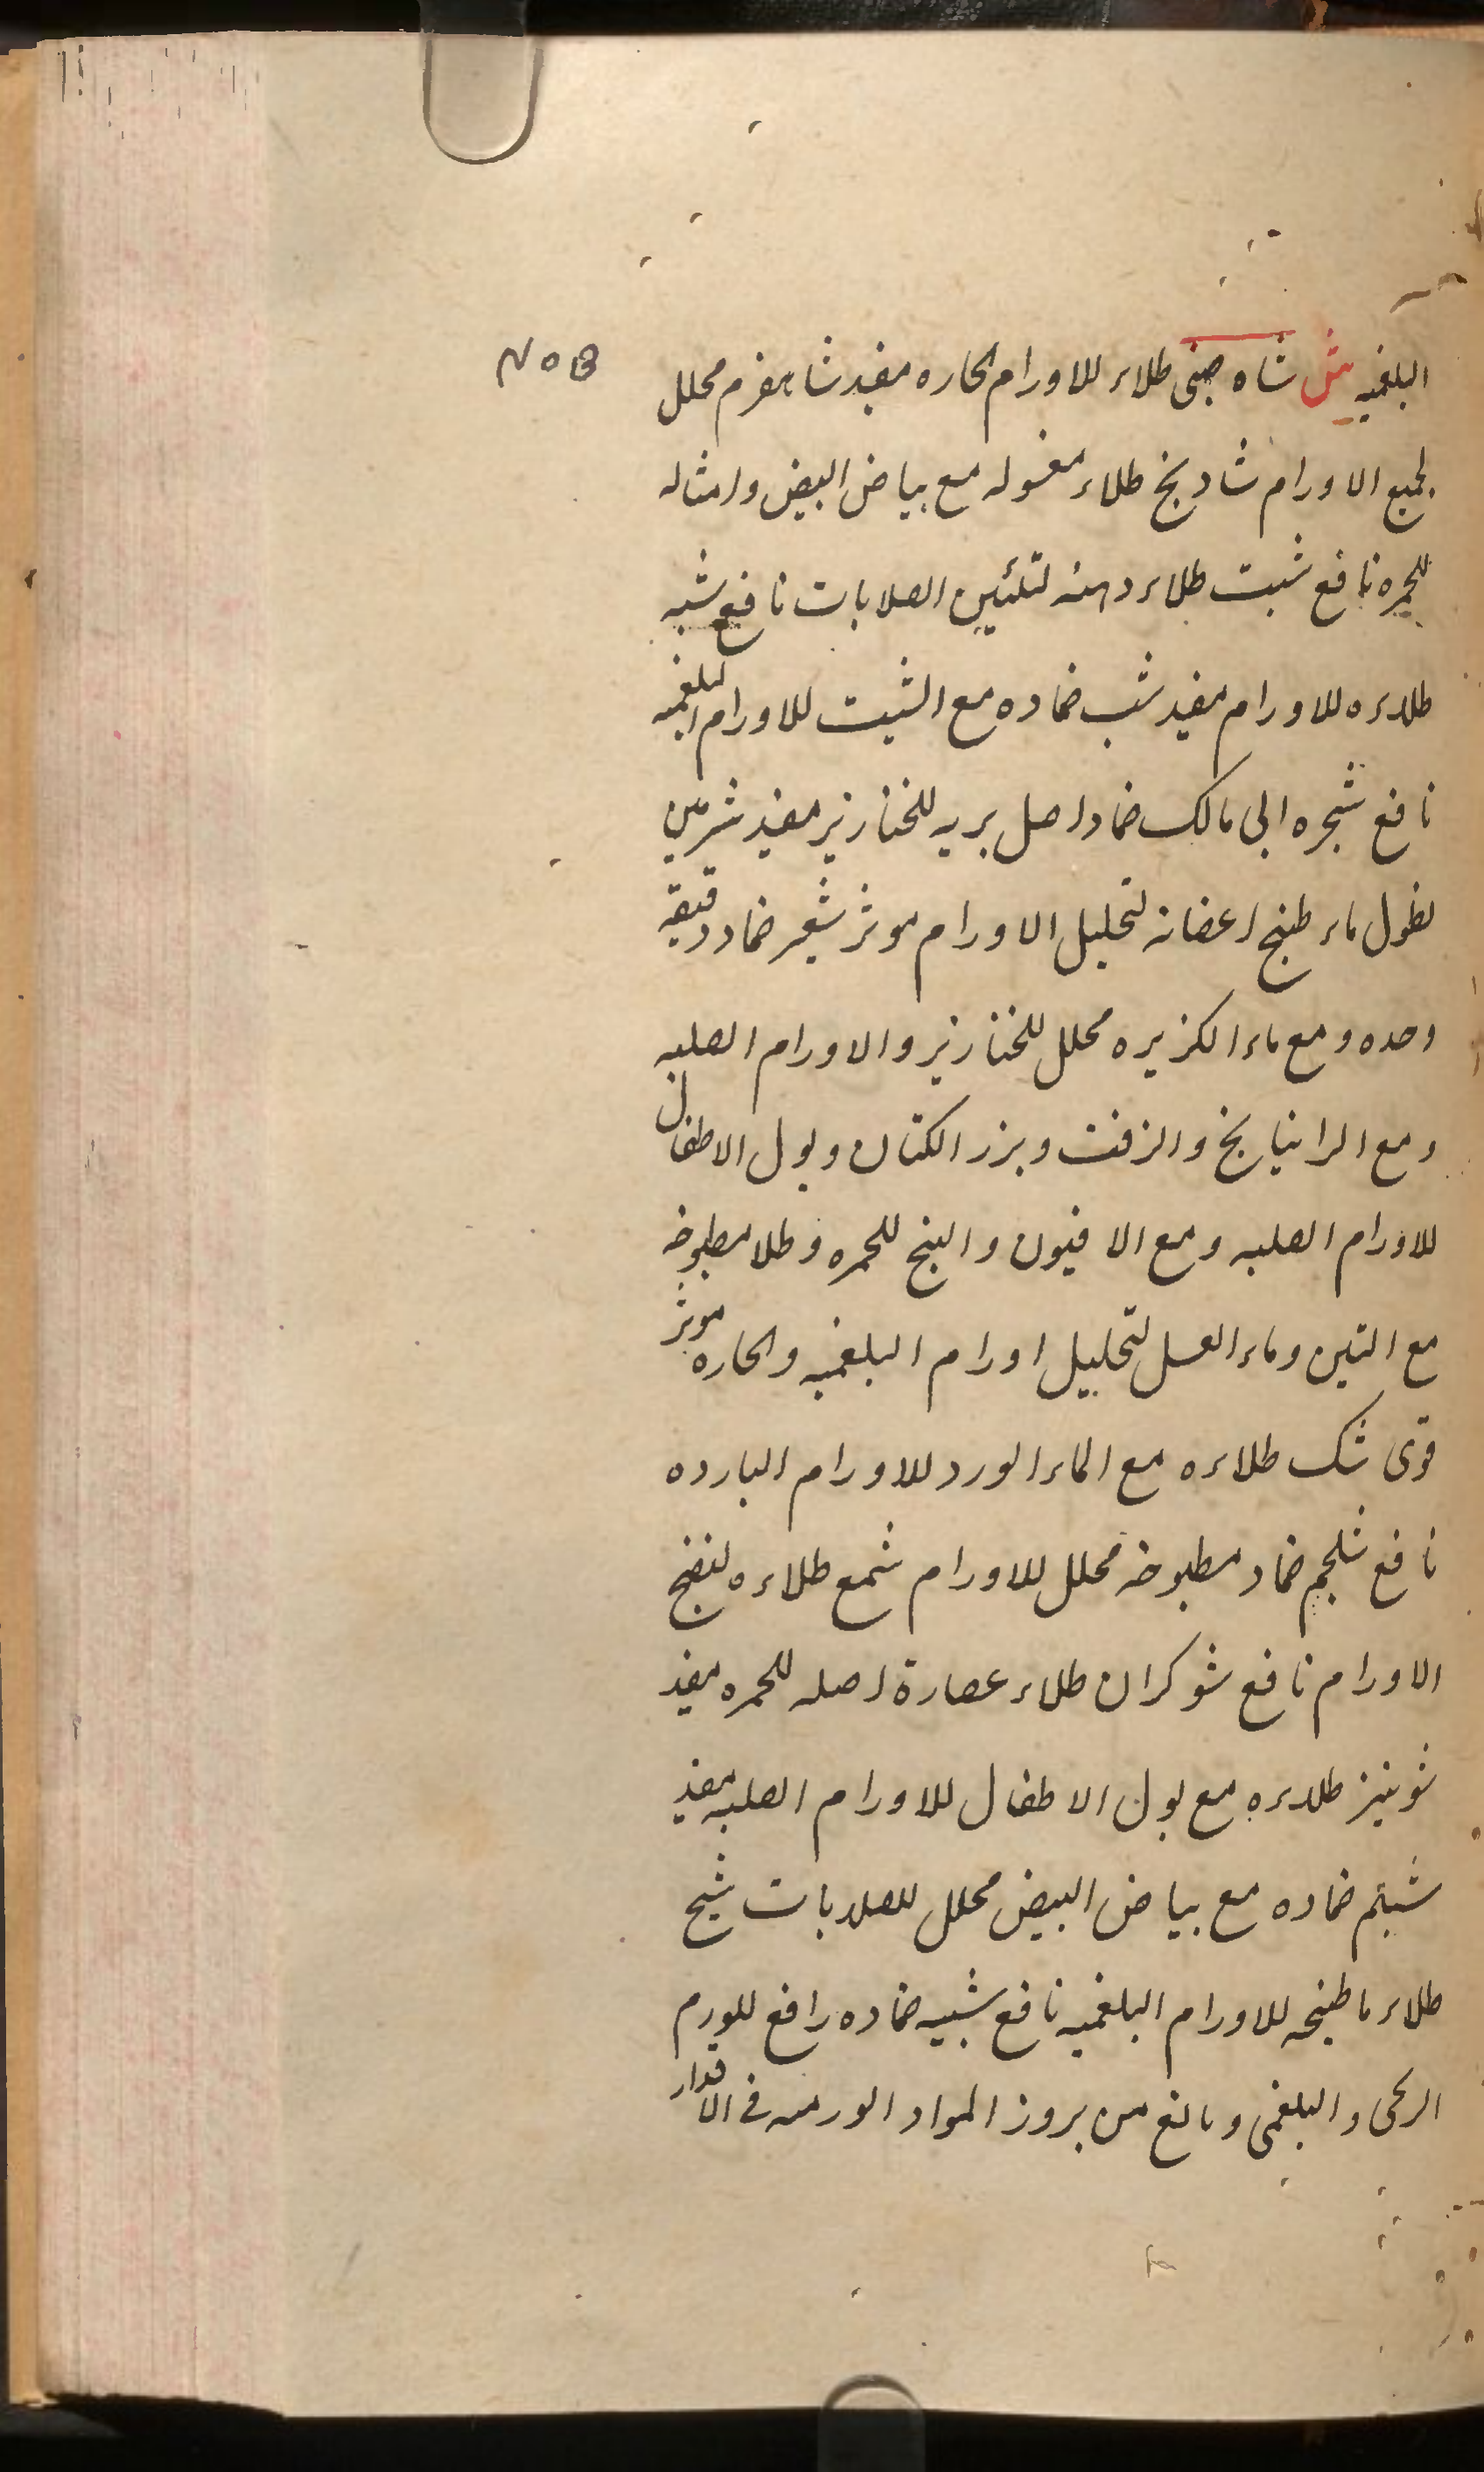 البلغميه ش شاه صنى طلاء للاورام الحاره مفيد شاهفرم محلل
لجميع الاورام شاديخ طلاء مغسوله مع بياض البيض وامثاله
للحمره نافع شبت طلاء دهنه لتلئين الصلابات نافع شبه
طلاءه للاورام مفيد شب ضماده مع الشبت للاورام البلغميه
نافع شجره ابى مالك ضماد اصل بريه للخنازير مفيد شربين
نطول ماء طبخ اغصانه لتحليل الاورام موثر شعير ضماد دقيقه
وحده ومع ماء الكزبره محلل للخنازير والاورام الصلبه
ومع الراتيانج والزفت وبزر الكتان وبول الاطفال
للاورام الصلبه ومع الافيون والبنج للحمره وطلا مطبوخه
مع التين وماء العسل لتحليل اورام البلغميه والحاره موثر
قوى شك طلاءه مع الماء الورد للاورام البارده
نافع شلجم ضماد مطبوخه محلل للاورام شمع طلاءه لنضج
الاورام نافع شوكران طلاء عصارة اصله للحمره مفيد
شونيز طلاءه مع بول الاطفال للاورام الصلبه مفيد
شيلم ضماده مع بياض البيض محلل للصلابات شيح
طلاء ما طبخه للاورام البلغميه نافع شيبه ضماده رافع للورم
الريحى والبلغمى ومانع من بروز المواد الورميه فى